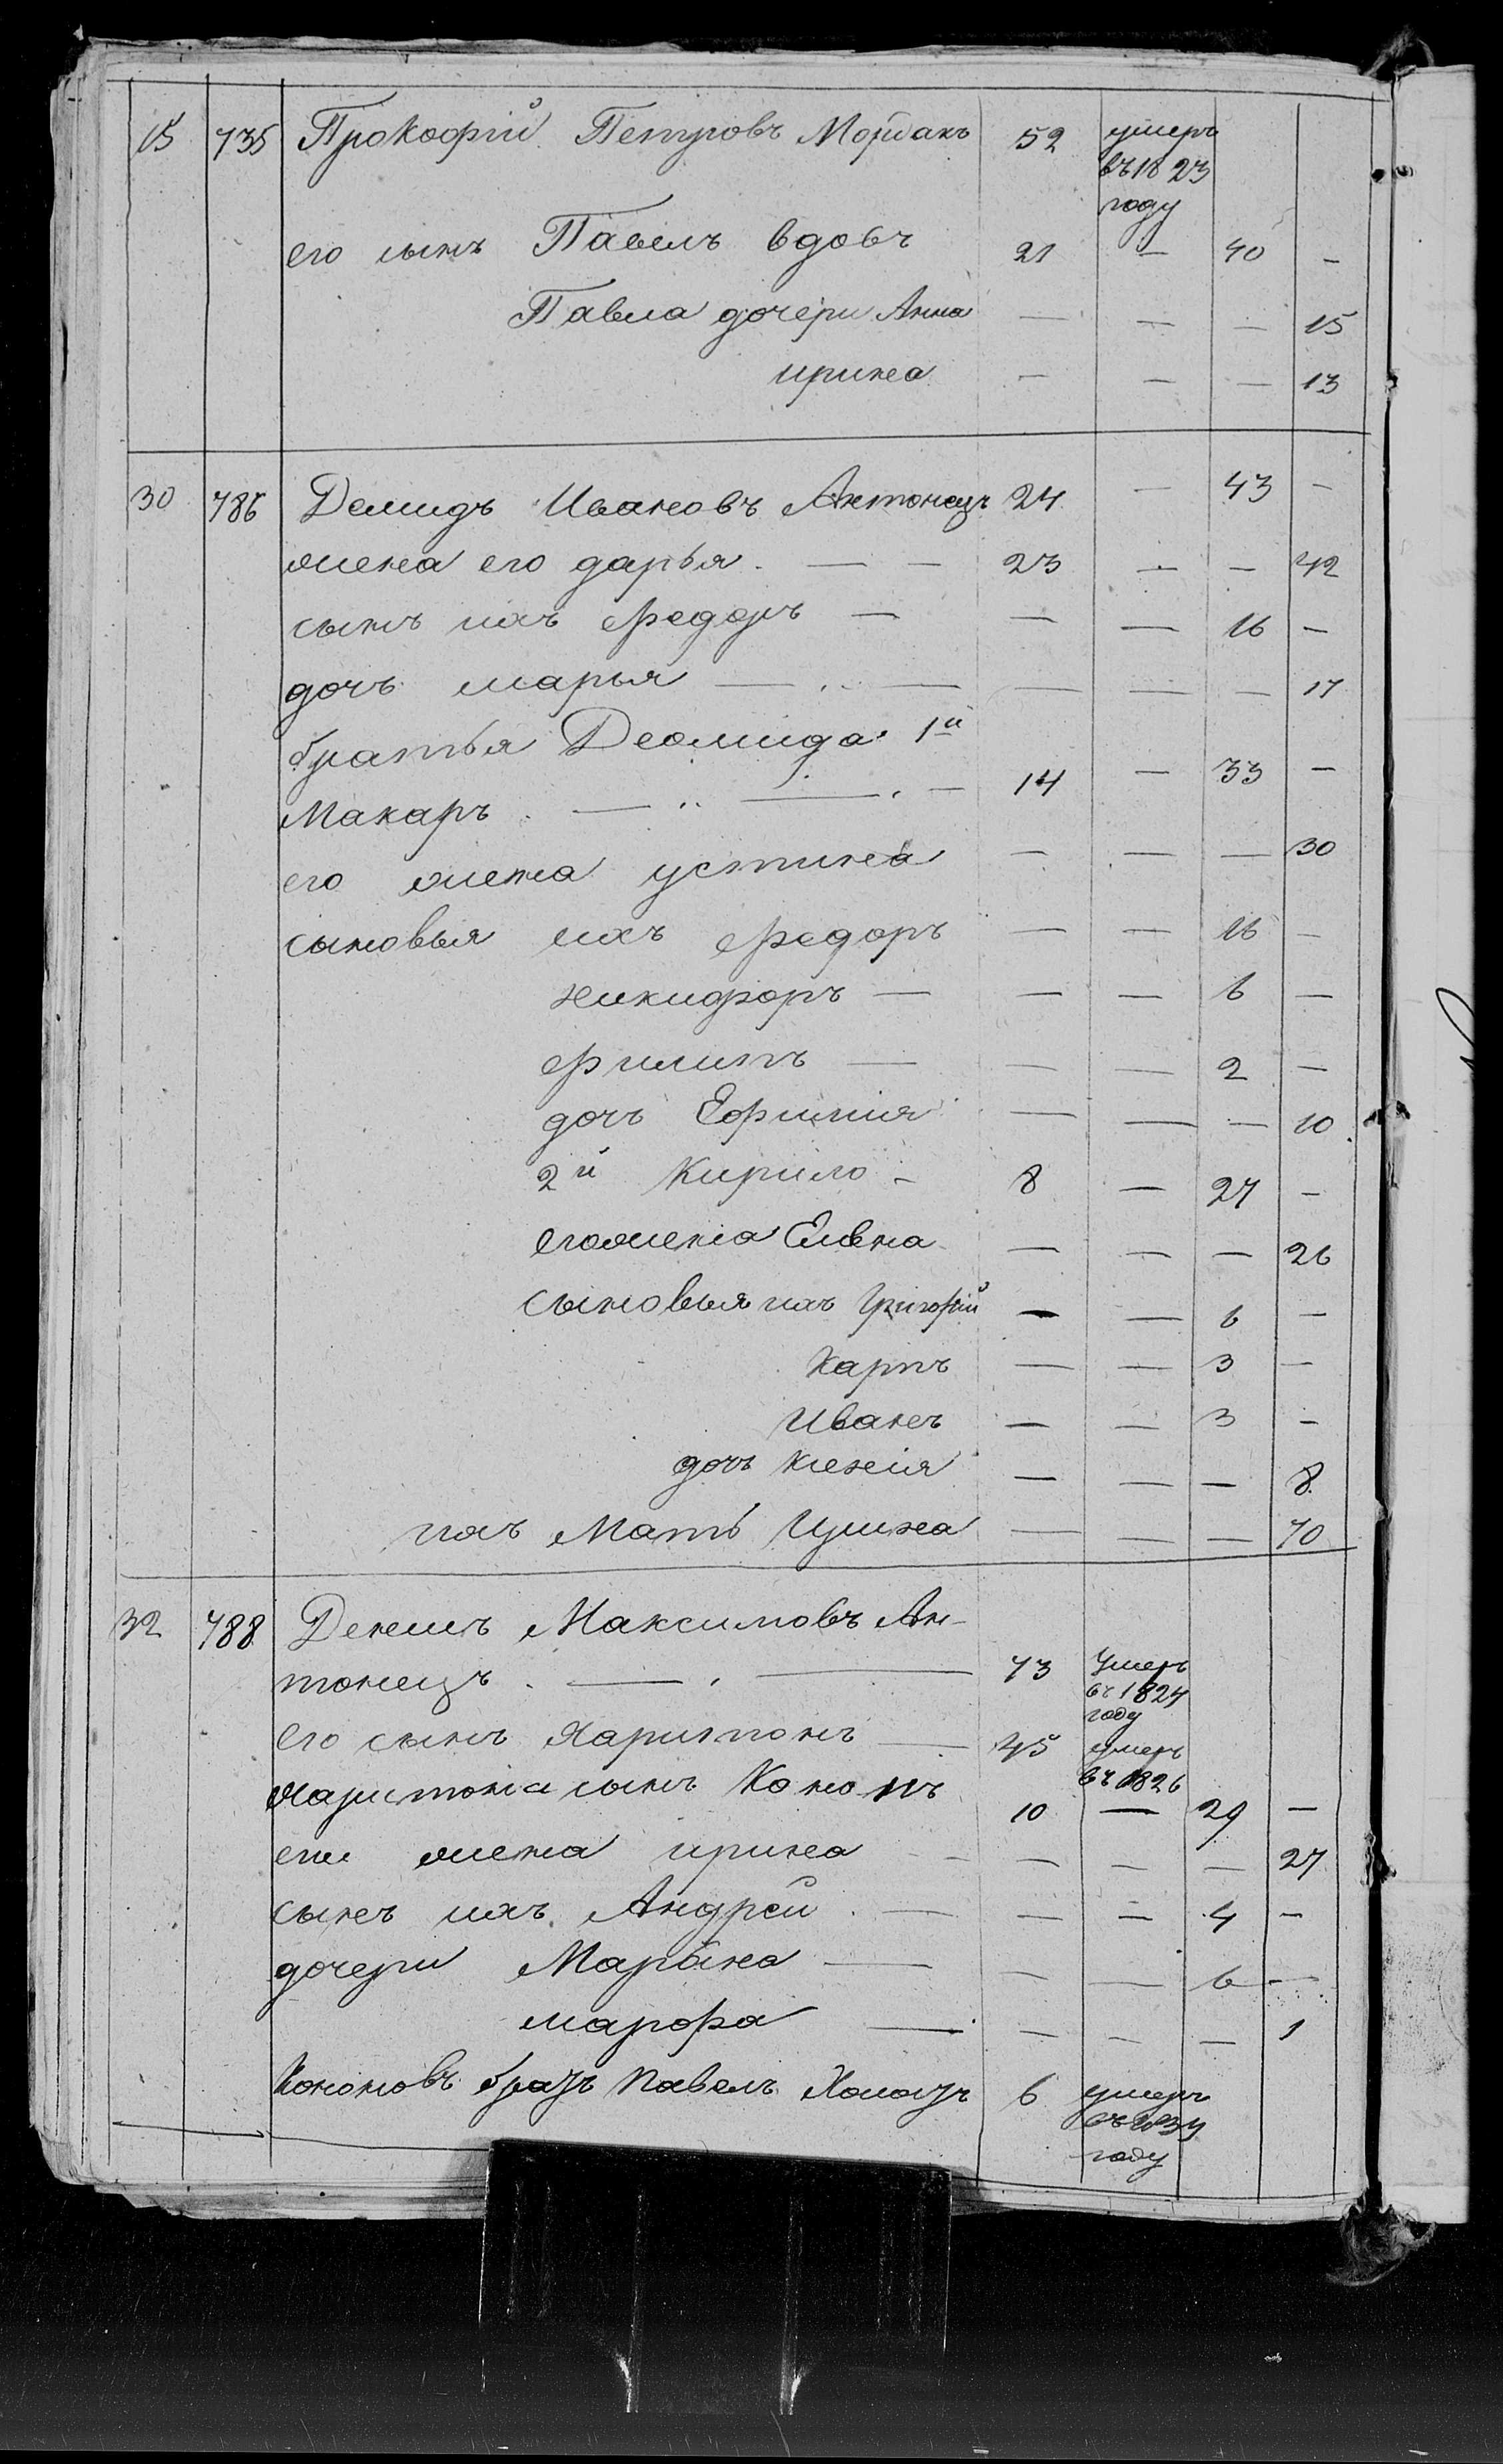 15 735 Прокофій Петровъ 52 умеръ
въ 1823
году
его сынъ Павелъ вдовъ 21 — 40 —
Павла дочери Анна — — — 15
ирина — — — 13
30 786 Демидъ Ивановъ Антонецъ 24 — 43 —
жена его дарья. — — 23 — — 42
сынъ ихъ Федоръ — — — 16 —
дочь марья — — — — — 17
братья Деомида 1й
Макаръ. — — — 14 — 33 —
его жена устина — — — 30
сыновья ихъ Федоръ — — 16 —
никифоръ — — — 6 —
Филипъ — — — 2 —
дочь Ефимія — — — 10
2й Кирило — 8 — 27 —
его жена Елена — — — 26
сыновья ихъ Григорій — — 6 —
Карпъ — — 3 —
Иванъ — — 3 —
дочь ксенія — — — 8
ихъ Мать — — — 70
32 788 Денисъ Максимовъ Ан-
тонецъ. — — 73 Умеръ
въ 1824
году
Его сынъ Харитонъ — 45 умеръ
въ 1826
Харитона сынъ Кононъ 10 — 29 —
его жена ирина — — — — 27
сынъ ихъ Андрей. — — — 4 —
дочери Марьяна — — — 6 —
марфа — — — — 1
Кононовъ братъ Павелъ 6 умеръ
году